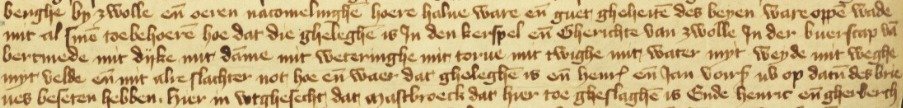 berghe by zwolle en̄ oeren nacomelinghē hoere halue ware en̄ guet gheheitē des beyen ware oppē wade
mit al sinē toebehoere hoe dat die gheleghē is In den kerspel en̄ Gherichte van zwolle In der buerscap vā
bercmede mit dijke mit dāme mit weteringhe mit torue mit twighe mit water myt weyde mit weghe
myt velde en̄ mit alre slachter not hoe en̄ waer dat gheleghē is en̄ henr en̄ Jan vors ub op datū des brie
ues beseten hebben. Hier in wtghesecht dat mastbroeck dat hier toe gheslaghē is Ende henric en̄ gherberch